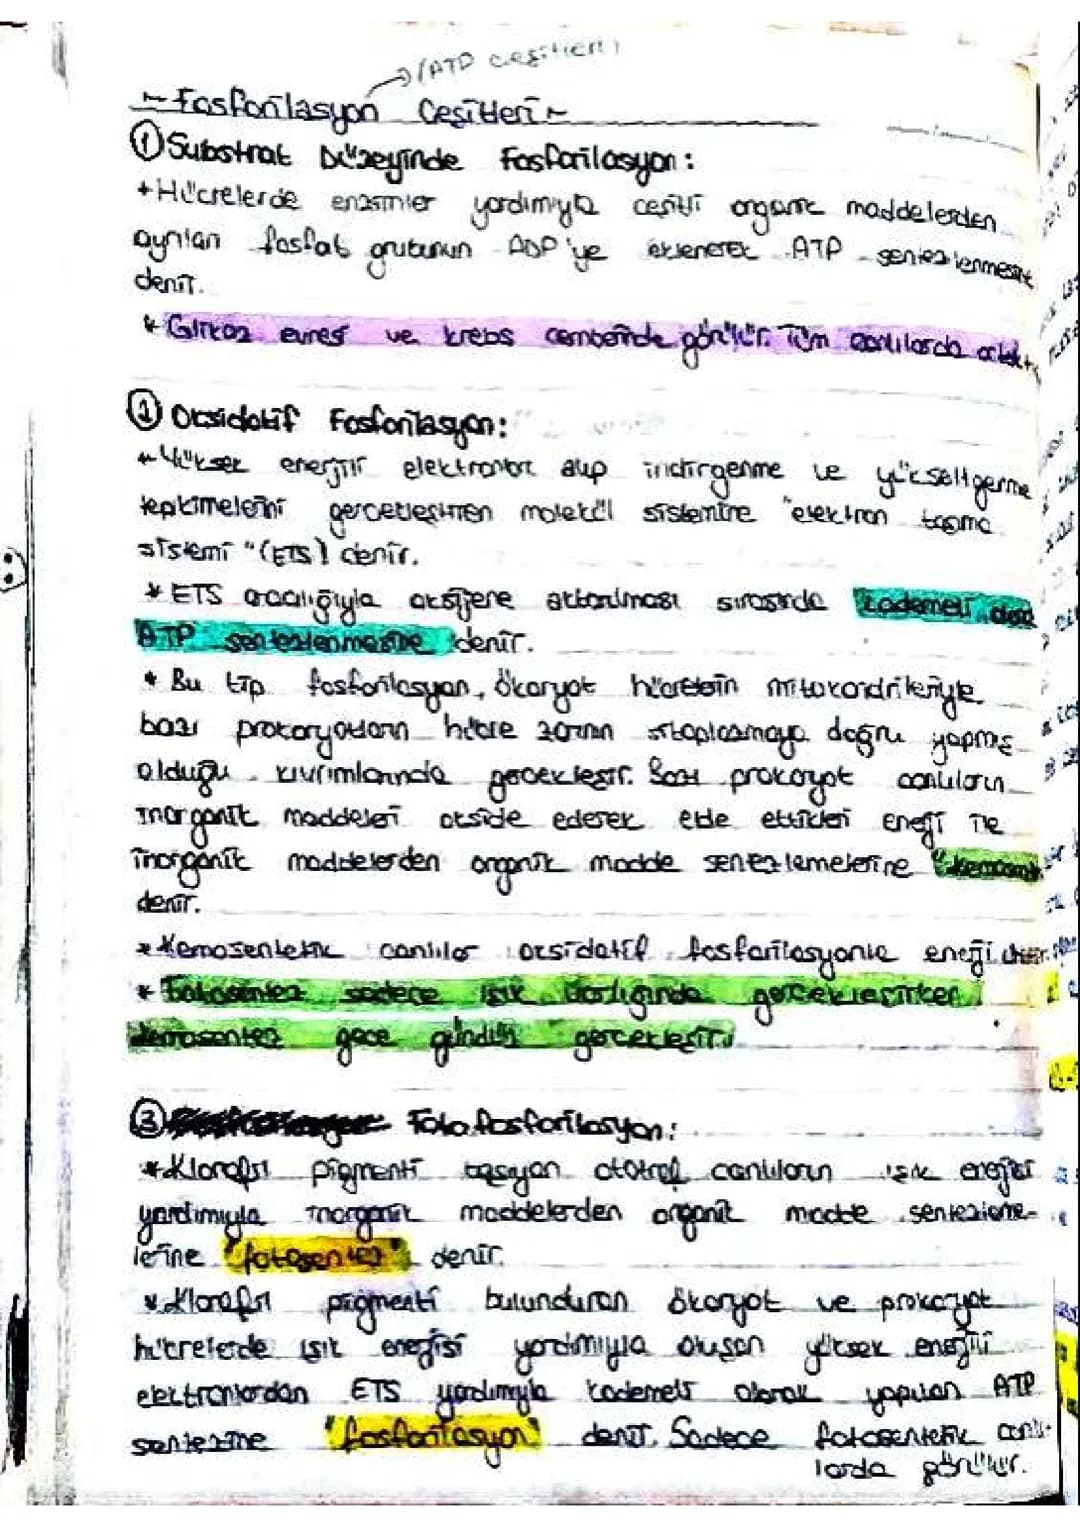 (ATP çeşitleri)
~ Fosforilasyon Çeşitleri ~
① Substrat Düzeyinde Fosforilasyon:
* Hücrelerde enzimler yardımıyla çeşitli organik maddelerden
ayrılan fosfat grubunun ADP'ye eklenerek ATP sentezlenmesine
denir.
* Glikoz evresi ve krebs çemberinde görülür. Tüm canlılarda ortaktır
② Oksidatif Fosforilasyon:
* Yüksek enerjili elektronları alıp indirgenme ve yükseltgenme
tepkimelerini gerçekleştiren molekül sistemine "elektron taşıma
sistemi" (ETS) denir.
* ETS aracılığıyla oksijene aktarılması sırasında kademeli olarak
ATP sentezlenmesine denir.
* Bu tip fosforilasyon, ökaryot hücrelerin mitokondrileriyle
bazı prokaryotların hücre zarının sitoplazmaya doğru yapmış
olduğu kıvrımlarında gerçekleşir. Bazı prokaryot canlıların
inorganik maddeleri okside ederek elde ettikleri enerji ile
inorganik maddelerden organik madde sentezlemelerine
denir.
* Kemosentetik canlılar oksidatif fosforilasyonla enerji
* Fotosentez sadece ışık varlığında gerçekleşirken
kemosentez gece gündüz gerçekleşir.
③ Fotofosforilasyon:
* Klorofil pigmenti taşıyan ototrof canlıların ışık enerjisi
yardımıyla inorganik maddelerden organik madde sentezleme-
lerine "fotosentez" denir.
* Klorofil pigmenti bulunduran ökaryot ve prokaryot
hücrelerde ışık enerjisi yardımıyla oluşan yüksek enerjili
elektronlardan ETS yardımıyla kademeli olarak yapılan ATP
sentezine "fosforilasyon" denir. Sadece fotosentetik canlı-
larda görülür.